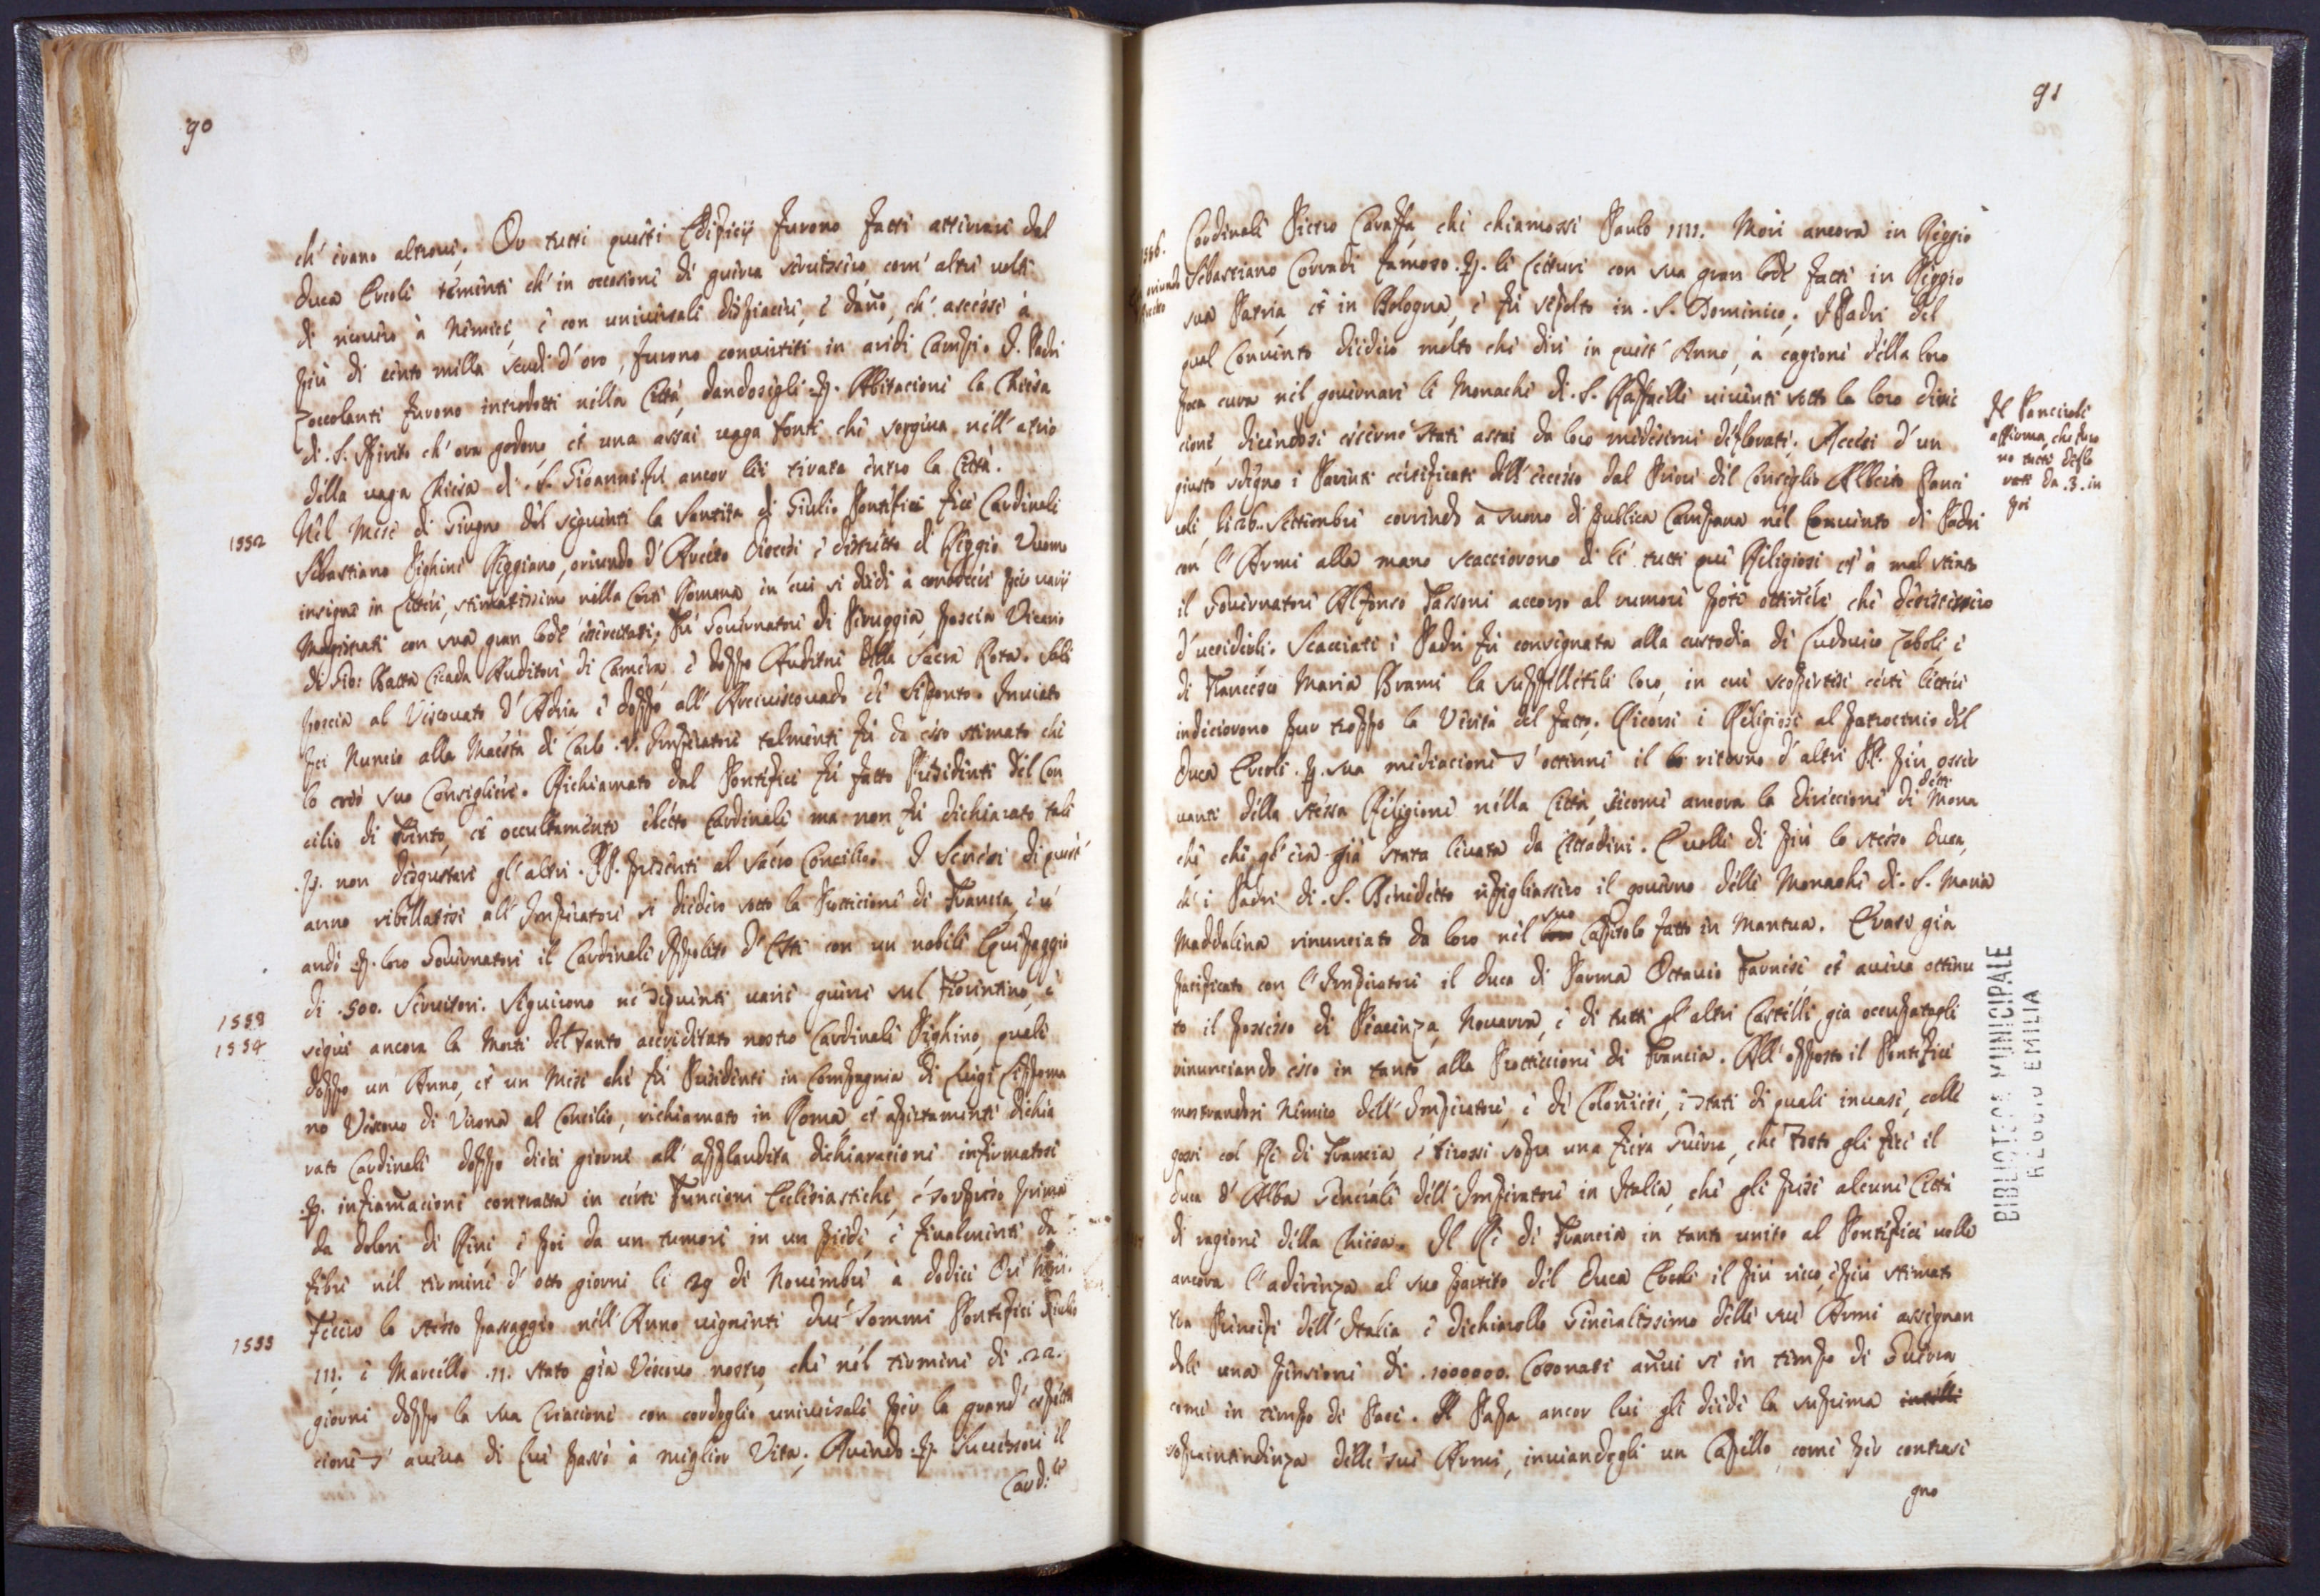 90
ch' erano altroue. Or tutti questi Edificij furono fatti atterrare dal
Duca Ercole temente ch' in occasione di guerra seruissero com' altre uolte
di ricouero à Nemici, è con uniuersale dispiacere, è daño, ch' ascesse à
più di cento milla scudi d' oro, furono conuertiti in aridi Campi. I Padri
Zoccolanti furono introdotti nella Città, dandosegli .p. Abitacione la Chiesa
di .S. Spirito ch' ora godono, et una assai uaga fonte che sorgeua nell' atrio
della uaga Chiesa di .S. Gioanni fù ancor lei tirata entro la Città.
1552
Nel Mese di Giugno del seguente la Santita di Giulio Pontefice fece Cardinale
Sebastiano Pighini Reggiano, oriundo d' Arceto Diocesi è distretto di Reggio Vuomo
insigne in Lettere, stimatissimo nella Corte Romana in cui si diede à conoscere per uarij
Magistrati con sua gran lode esercitati. Fù Gouernatore di Peruggia, poscia Vicario
di Gio: Batta Cicada Auditore di Camera è doppo Auditore della Sacra Rota. Salì
poscia al Vescouato d' Adria è doppo all' Arciuescouado di Siponto. Inuiato
poi Nuncio alla Maestà di Carlo .V. Imperatore talmente fù da esso stimato che
lo creò suo Consigliere. Richiamato dal Pontefice fù fatto Presidente del Con
cilio di Trento, et occultamente eletto Cardinale ma non fù dichiarato tale
.p. non disgustare gl' altri .PP. presenti al Sacro Concilio. I Senesi di quest'
anno ribellatisi all' Imperatore si diedero sotto la Protticione di Francia, è u'
andò .p. loro Gouernatore il Cardinale Ippolito d' Este con un nobile Equipaggio
di .500. Seruitori. Seguirono ne' seguenti uarie guerre sul Fiorentino, è
1553
1554
seguì ancora la Morte del tanto accreditato nostro Cardinale Pighino, quale
doppo un Anno, et un Mese che fù Presidente in Compagnia di Luigi Lippoma
no Vescouo di Verona al Concilio, richiamato in Roma, et apertamente dichia
rato Cardinale doppo dieci giorni all' applaudita dichiaracione infermatosi
.p. infiamacione contratta in certe Funcioni Ecclesiastiche, è sorpreso prima
da dolori di Reni è poi da un tumore in un piede, è finalmente da
febre nel termine d' otto giorni li 29 di Nouembre à dodici Ore
1555
Fecero lo stesso passaggio nell' Anno uegnente due Sommi Pontefici Giulio
III. è Marcello .II. stato già Vescouo nostro, che nel termine di .22.
giorni doppo la sua Creacione con cordoglio uniuersale per la grand' espetta
cione s' aueua di Lui passò à miglior Vita. Auendo .p. Successore il
Card.le
91
1556.
Cardinale Pietro Caraffa, che chiamossi Paulo IIII. Morì ancora in Reggio
Sebastiano Corradi famoso .p. le Letture con sua gran lode fatte in Reggio
sua Patria, et in Bologna, è fù sepolto in .S. Dominico. I Padri del
qual Conuento diedero molto che dire in quest' Anno, à cagione della loro
poca cura nel gouernare le Monache di .S. Raffaelle uiuenti sotto la loro direc
cione, dicendosi esserne state assai da loro medesimi deflorate. Accesi d' un
Il Panciroli
afferma, che furo
no tutte deflo
rate da .3. in
poi
giusto sdegno i Parenti certificati dell' eccesso dal Priore del Conseglio Alberto Panci
roli, li Settembre correndo à suono di publica Campana nel Conuento di Padri
con l' Armi alla mano scacciorono di lì tutti que' Religiosi et à mal stento
il Gouernatore Alfonso Tassoni accorso al rumore potè ottenere che desistessero
d' ucciderli. Scacciati i Padri fù consegnata alla custodia di Ludouico Zoboli, è
di Francesco Maria Brami la suppellettile loro, in cui scopertesi certe lettere
indiciorono pur troppo la Verità del fatto. Ricorsi i Religiosi al patrocinio del
Duca Ercole .p. sua mediacione s' ottenne il ritorno d' altri PP. più osser
uanti della stessa Religione nella Città, sicome ancora la direccione di dette Mona
che che gl' era già stata leuata da Cittadini. E uolle di più lo stesso Duca,
ch' i Padri di .S. Benedetto ripigliassero il gouerno delle Monache di .S. Maria
Maddalena rinunciato da loro nel suo Capitolo fatto in Mantua. Erasi già
pacificato con l' Imperatore il Duca di Parma Octauio Farnese, et aueua ottenu
to il possesso di Piacenza, Nouarra, è di tutti gl' altri Castelli già occupatogli
rinunciando esso in tanto alla Protticcione di Francia. All' opposto il Pontefice
mostrandosi Nemico dell' Imperatore, è di Colonnesi, i stati di quali inuase, colle
gossi col Rè di Francia, è tirossi sopra una fiera Guerra, che tosto gli fece il
Duca d' Alba Generale dell' Imperatore in Italia, che gli prese alcune Città
di ragione della Chiesa. Il Rè di Francia in tanto unito al Pontefice uolle
ancora l' aderenza al suo partito del Duca Ercole il più ricco, è più stimato
tra Principi dell' Italia è dichiarollo Generalissimo delle sue Armi assegnan
doli una pensione di .1000000. Coronati añui si in tempo di Guerra
come in tempo di Pace. Il Papa ancor lui gli diede la suprema
sopraintendenza delle sue Armi, inuiandogli un Capello, come per contrase
gno
BIBLIOTECA MUNICIPALE
REGGIO EMILIA